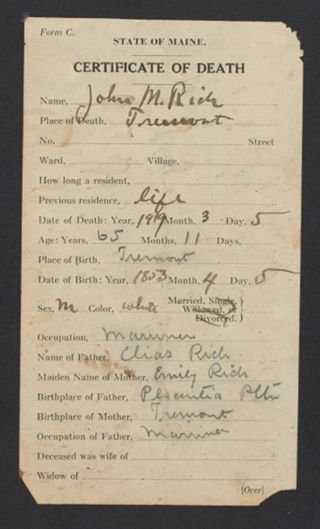 Form C.
STATE OF MAINE.
CERTIFICATE OF DEATH
Name, John M. Rich
Place of Death, Tremont
No. Street
Ward, Village.
How long a resident,
Previous residence, life
Date of Death: Year, 1919 Month, 3 Day, 5
Age: Years, 65 Months, 11 Days,
Place of Birth, Tremont
Date of Birth: Year, 1853 Month, 4 Day, 5
Sex, M Color, white Married, Single, Widowed, or Divorced.
Occupation, Marriner
Name of Father, Elias Rich
Maiden Name of Mother, Emily Rich
Birthplace of Father, Placentia Pltn
Birthplace of Mother, Tremont
Occupation of Father, Marriner
Deceased was wife of
Widow of
[Over]